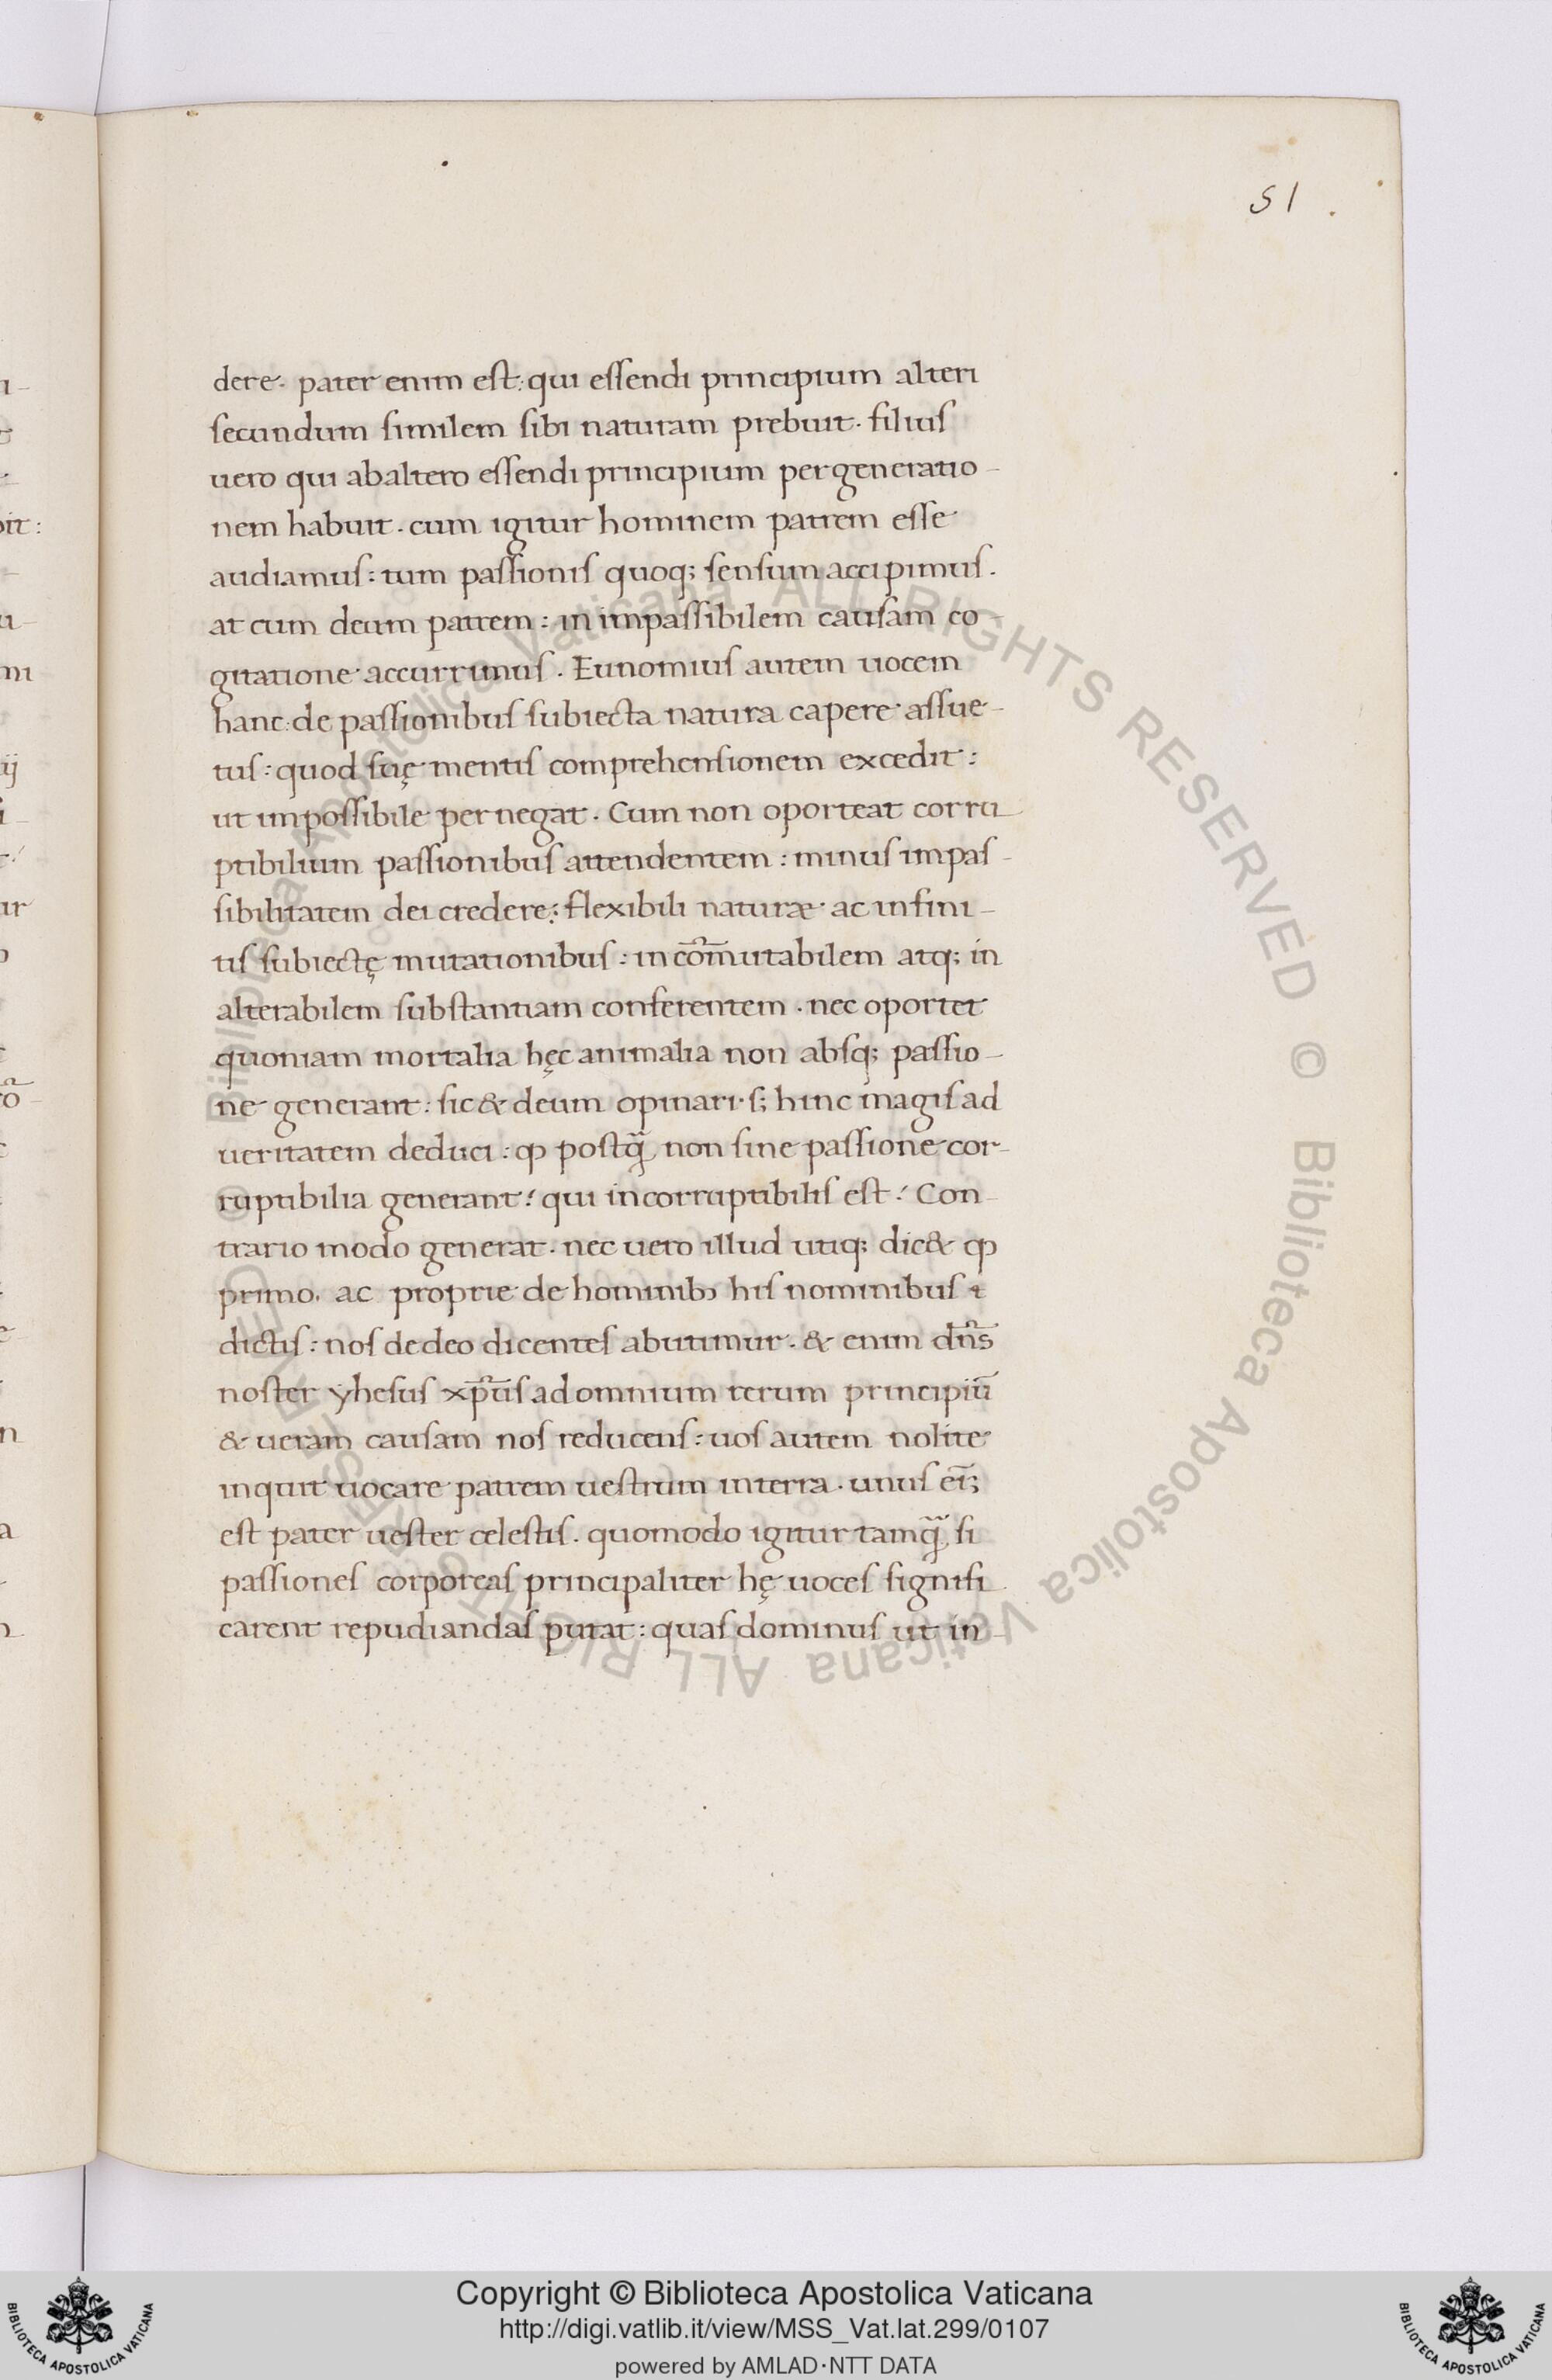 51
dere. pater enim est: qui essendi principium alteri
secundum similem sibi naturam prebuit. filius
uero qui abaltero essendi principium pergeneratio-
nem habuit. cum igitur hominem patrem esse
audiamus: tum passionis quoq; sensum accipimus.
at cum deum patrem: in impassibilem causam co-
gitatione accurrimus. Eunomius autem uocem
hanc: de passionibus subiecta natura capere assue-
tus: quod suę mentis comprehensionem excedit:
ut impossibile pernegat. Cum non oporteat corru-
ptibilium passionibus attendentem: minus impas-
sibilitatem dei credere: flexibili naturæ ac infini-
tis subiectę mutationibus: incōmutabilem atq; in
alterabilem substantiam conferentem. nec oportet
quoniam mortalia hęc animalia non absq; passio-
ne generant: sic & deum opinari. s; hinc magis ad
ueritatem deduci: ꝙ postq̃ non sine passione cor-
ruptibilia generant! qui incorruptibilis est! Con-
trario modo generat. nec uero illud utiq; dic& ꝙ
primo. ac proprie de hominibꝫ his nominibus i
dictis: nos dedeo dicentes abutimur. & enim dn̄s
noster yhesus xp̄us ad omnium rerum principiū
& ueram causam nos reducens: uos autem nolite
inquit uocare patrem uestrum interra. unus ei̅;
est pater uester celestis. quomodo igitur tamq̃ si
passiones corporeas principaliter hę uoces signifi-
carent repudiandas putat: quas dominus ut in-
© Biblioteca Apostolica Vaticana ALL RIGHTS RESERVED
© Biblioteca Apostolica Vaticana ALL RIGHTS RESERVED
Copyright © Biblioteca Apostolica Vaticana
http://digi.vatlib.it/view/MSS_Vat.lat.299/0107
powered by AMLAD·NTT DATA
BIBLIOTECA APOSTOLICA VATICANA
BIBLIOTECA APOSTOLICA VATICANA